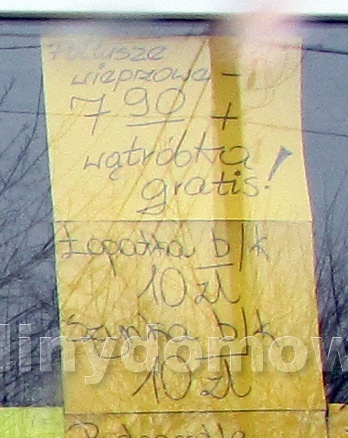 Podusze
wieprzowe -
7 90 +
wątróbka
gratis!
Łopatka b/k
10 zł
Szynka b/k
10 zł
linydomow